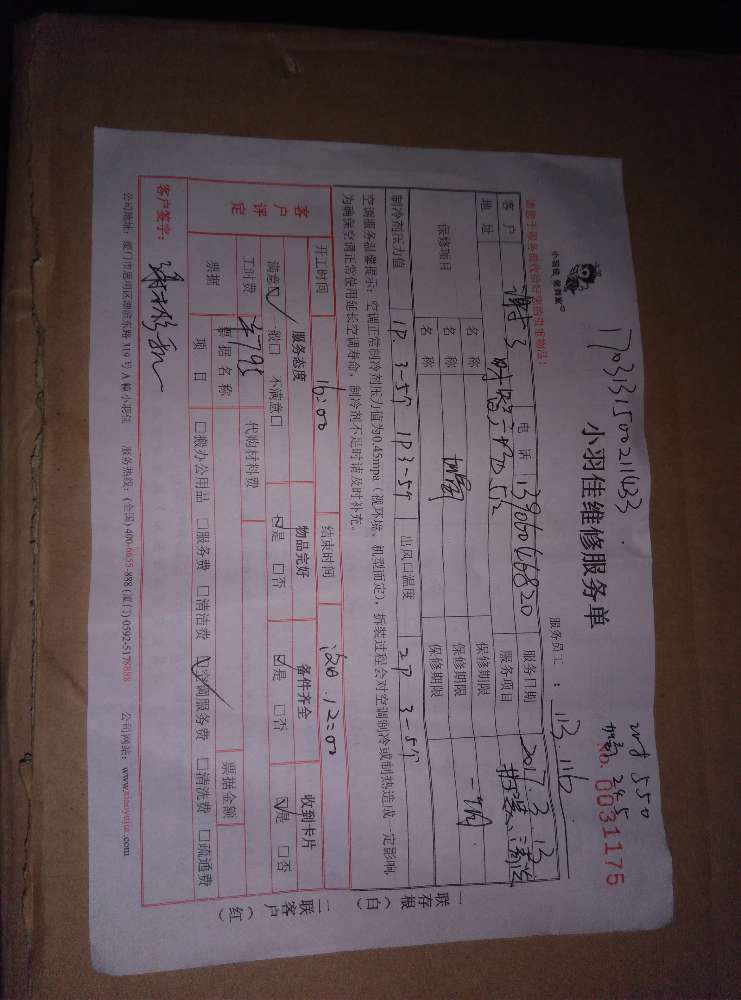 17031315002111433
小羽佳 您到家
小羽佳维修服务单
550
245
No. 0031175
服务员工：113.116
请您于服务前收拾好您的贵重物品！
客户 谢 电话 13906046820 服务日期 2017.3.13
地址 服务项目 清洗
保修项目 名称 加氟 保修期限 一个月
名称 保修期限
名称 保修期限
制冷剂压力值 1P 3-5个 1P 3-5个 出风口温度 2P 3-5个
空调服务温馨提示：空调正常制冷剂压力值为0.45mpa（视环境、机型而定），拆装过程会对空调制冷或制热造成一定影响，
为确保空调正常使用延长空调寿命，制冷剂不足时请及时补充。
开工时间 16:00 结束时间 12:00
客户评定 服务态度 物品完好 备件齐全 收到卡片
满意☑ 一般口 不满意口 ☑是 □否 ☑是 □否 ☑是 □否
工时费 ¥795 代购材料费
票据 票据名称 票据金额
项目 □搬办公用品 □服务费 □清洁费 ☑空调服务费 □清洗费 □疏通费
客户签字：
公司地址：厦门市思明区湖滨东路319号A幢小羽佳 服务热线：(全国)400-6655-888 (厦门)0592-5178888 公司网站：www.xiaoyujia.com
一联存根（白）
二联客户（红）